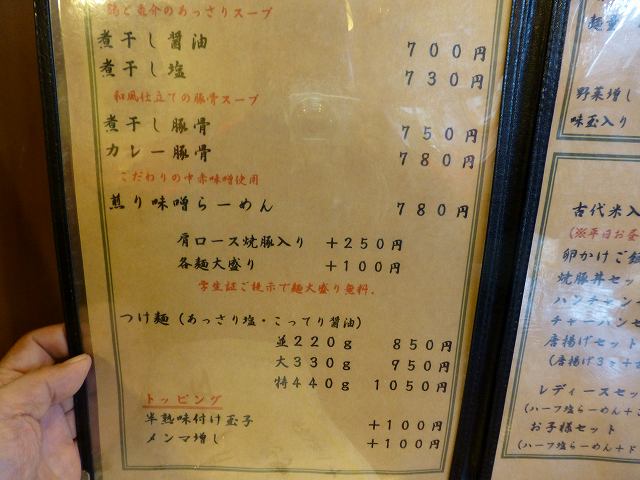 鶏と魚介のあっさりスープ
煮干し醤油 700円
煮干し塩 730円
和風仕立ての豚骨スープ
煮干し豚骨 750円
カレー豚骨 780円
こだわりの中赤味噌使用
煎り味噌らーめん 780円
肩ロース焼豚入り +250円
各麺大盛り +100円
学生証ご提示で麺大盛り無料.
つけ麺(あっさり塩・こってり醤油)
並220g 850円
大330g 950円
特440g 1050円
トッピング
半熟味付け玉子 +100円
メンマ増し +100円
野菜増し
味玉入り
古代米入
(※平日お昼
卵かけご飯
焼豚丼セッ
ハンチャン
チャーハンセ
唐揚げセット
(唐揚げ3ヶ+古
レディースセッ
(ハーフ塩らーめん+こ
お子様セット
(ハーフ塩らーめん+ド